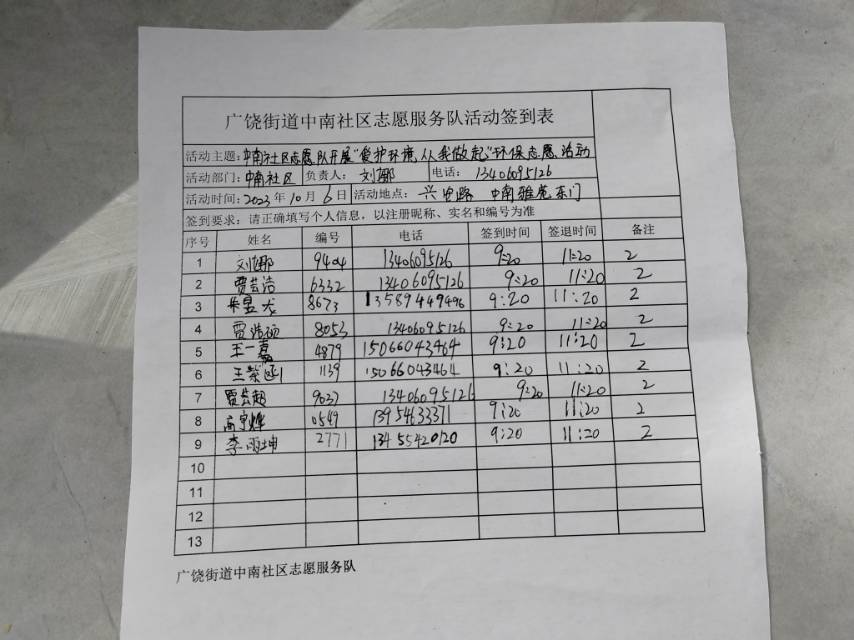 广饶街道中南社区志愿服务队活动签到表
活动主题：中南社区志愿队开展"爱护环境，从我做起"环保志愿活动
活动部门：中南社区 负责人：刘娜 电话：13406095126
活动时间：2023年10月6日 活动地点： 中南雅苑东门
签到要求：请正确填写个人信息，以注册昵称、实名和编号为准
序号 姓名 编号 电话 签到时间 签退时间 备注
1 9404 13406095126 9:20 11:20 2
2 贾芸浩 6332 13406095126 9:20 11:20 2
3 8673 13589449496 9:20 11:20 2
4 贾浩硕 8053 13406095126 9:20 11:20 2
5 王一嘉 4879 15066043464 9:20 11:20 2
6 王紫 1139 15066043464 9:20 11:20 2
7 贾芸超 9037 13406095126 9:20 11:20 2
8 高宇烨 0549 13954633371 9:20 11:20 2
9 李雨坤 2771 13455420120 9:20 11:20 2
10
11
12
13
广饶街道中南社区志愿服务队